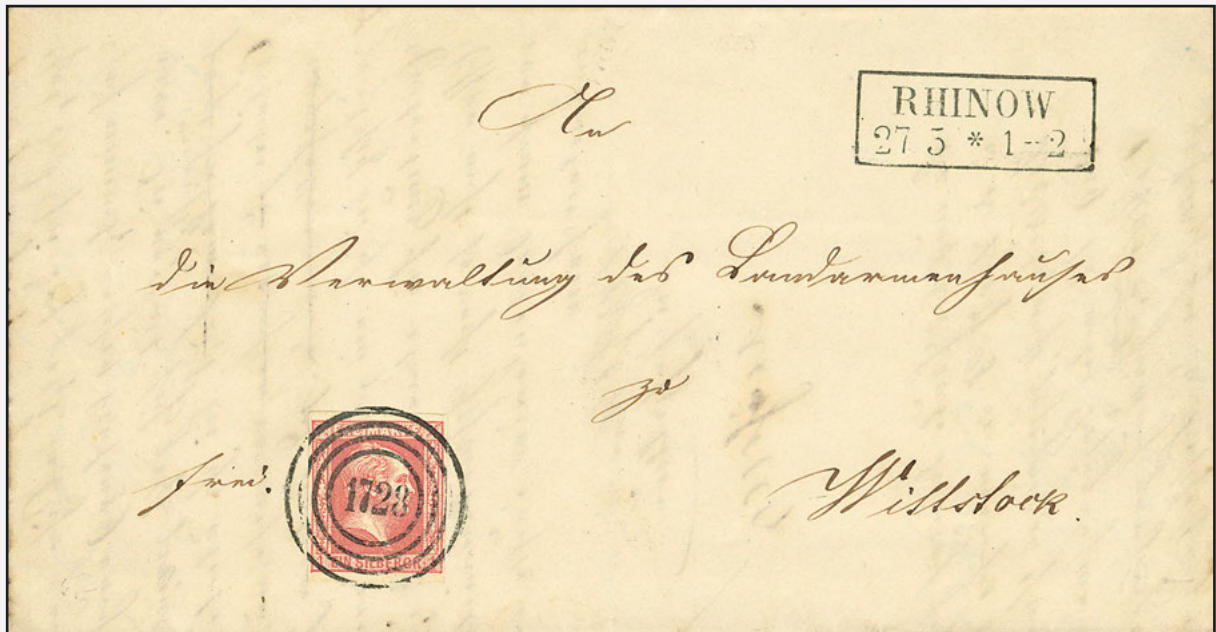 An
RHINOW
27 5 * 1-2
die Verwaltung des Landarmenhauses
zu
frei.
1728
1 EIN SILBERGR.
Wittstock.